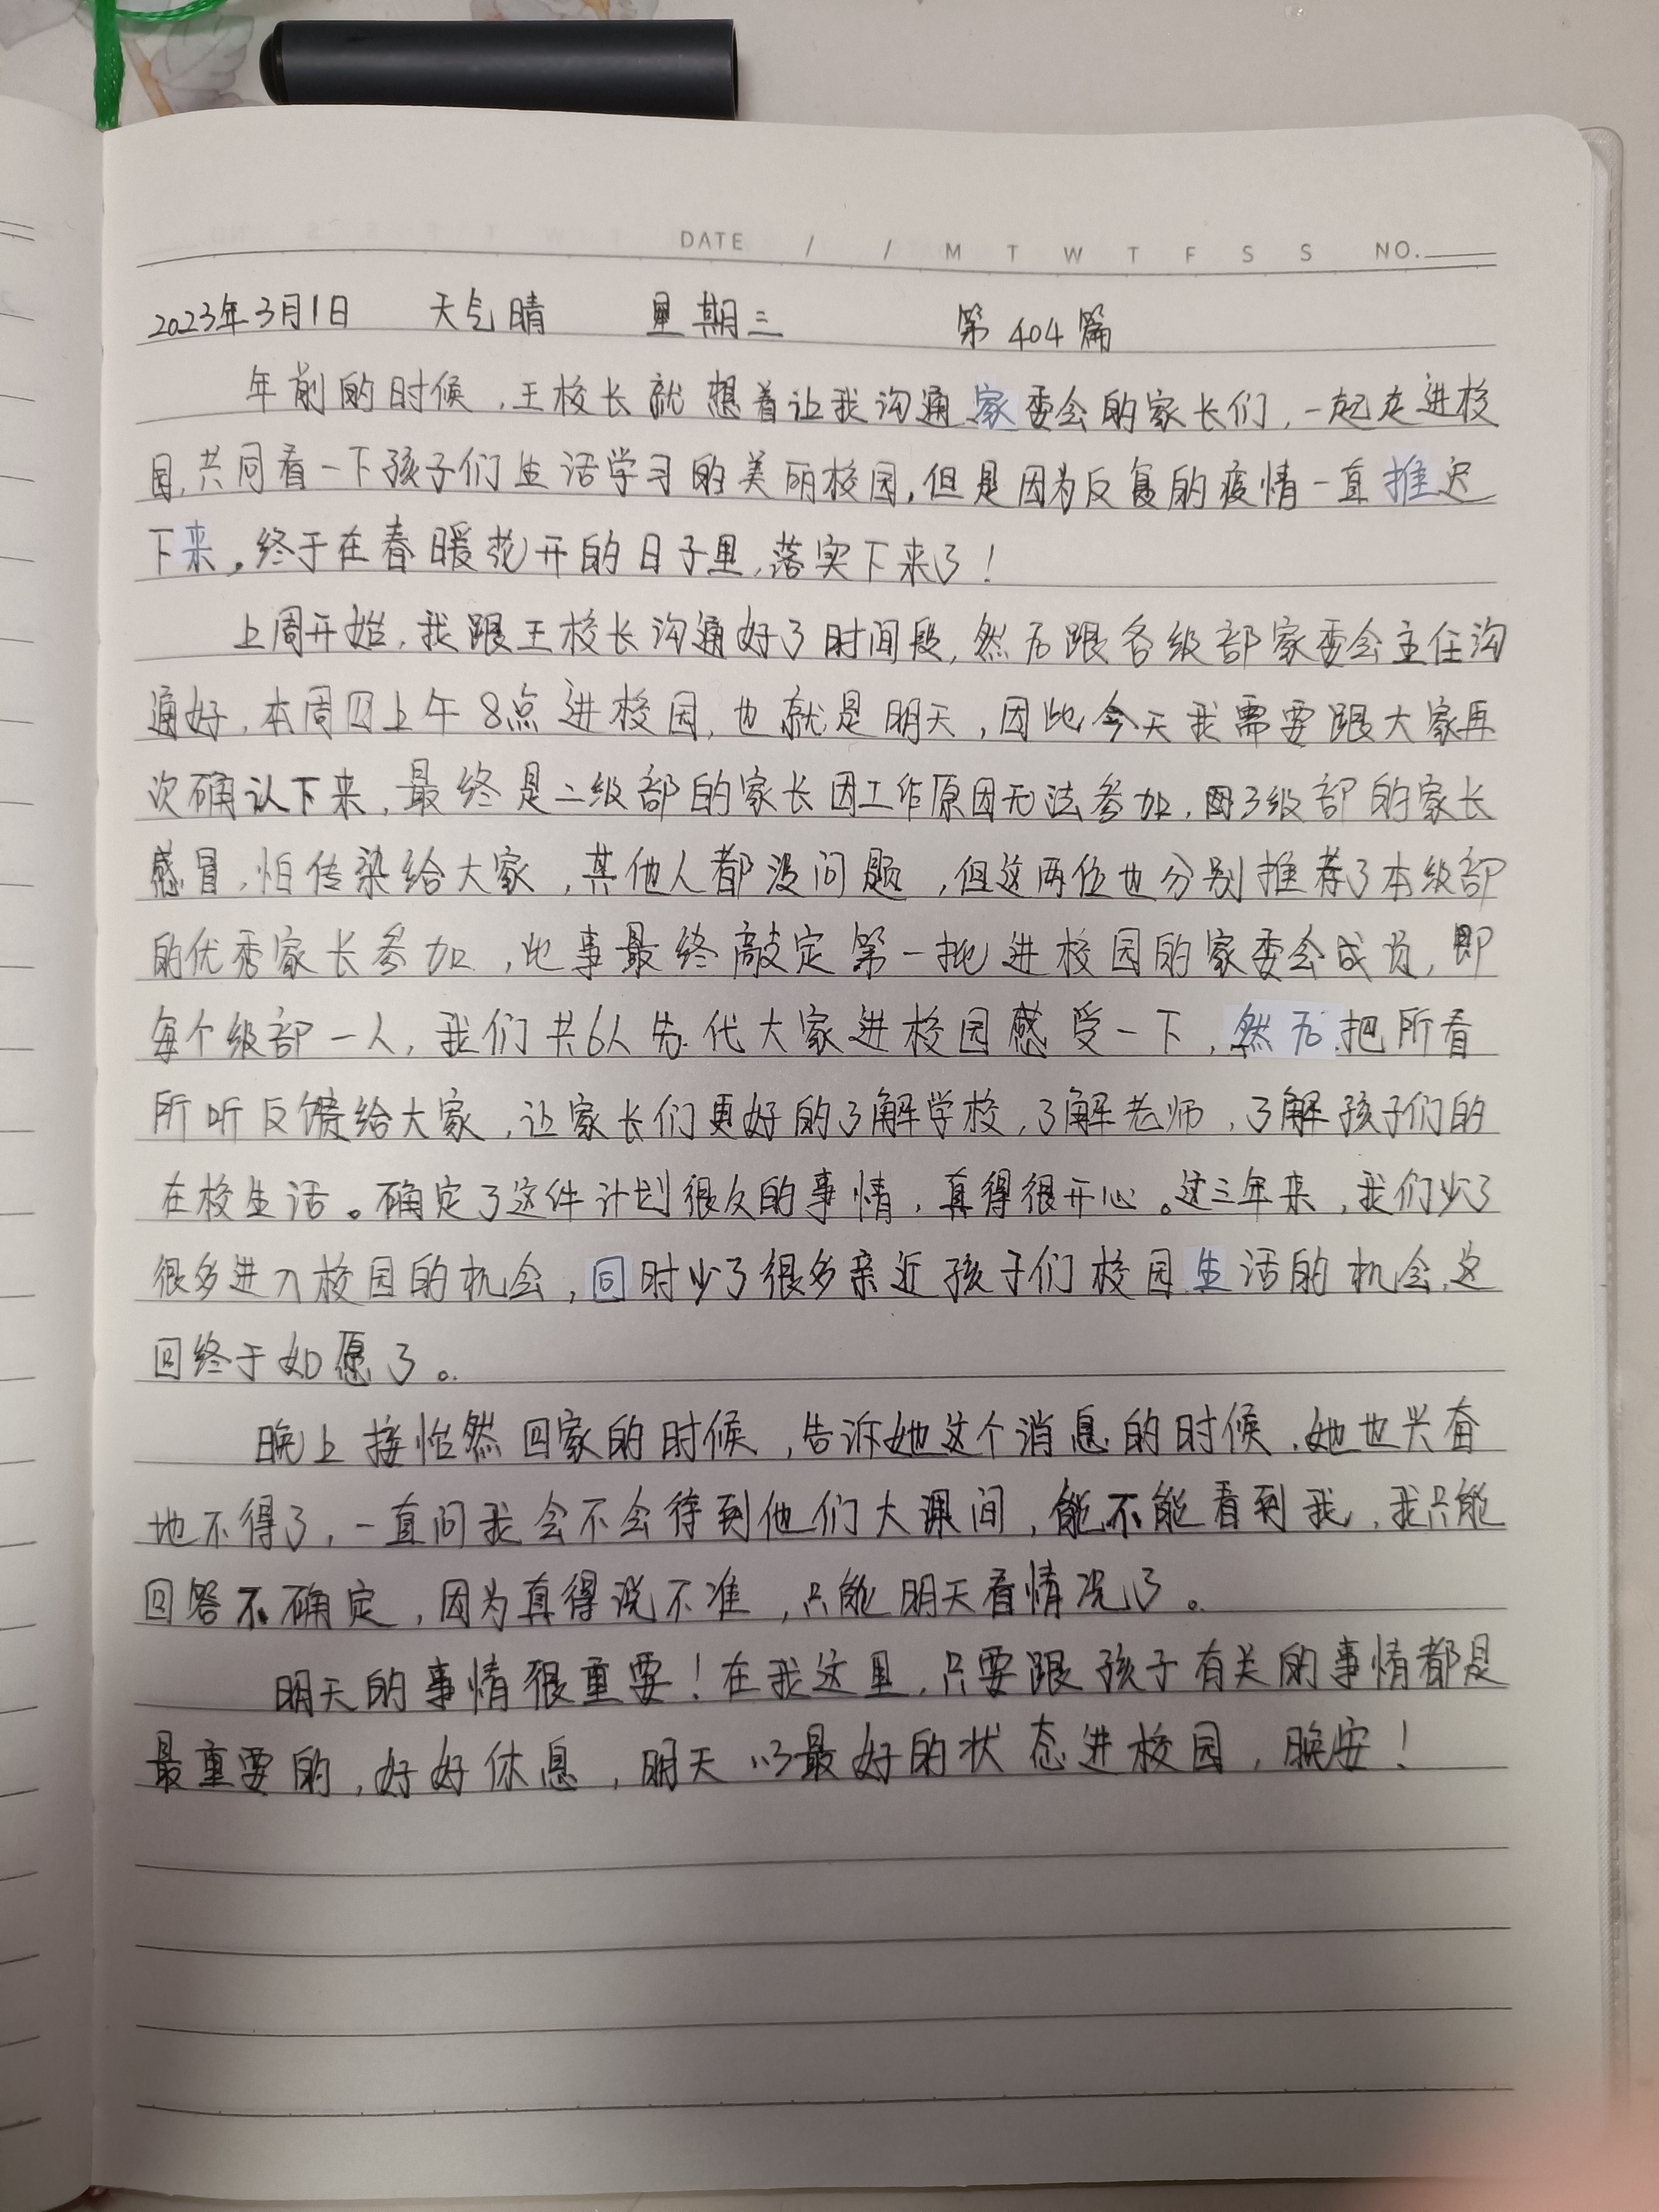 DATE / / M T W T F S S NO.
2023年3月1日 天气晴 星期三 第404篇
年前的时候,王校长就想着让我沟通家委会的家长们,一起走进校
园,共同看一下孩子们生活学习的美丽校园,但是因为反复的疫情一直推迟
下来。终于在春暖花开的日子里,落实下来了!
上周开始,我跟王校长沟通好了时间段,然后跟各级部家委会主任沟
通好,本周四上午8点进校园,也就是明天,因此今天我需要跟大家再
次确认下来,最终是二级部的家长因工作原因无法参加,四级部的家长
感冒,怕传染给大家,其他人都没问题,但这两位也分别推荐了本级部
的优秀家长参加,此事最终敲定第一批进校园的家委会成员,即
每个级部一人,我们共6人先代大家进校园感受一下,然后把所看
所听反馈给大家,让家长们更好的了解学校,了解老师,了解孩子们的
在校生活。确定了这件计划很久的事情,真得很开心。这三年来,我们少了
很多进入校园的机会,同时少了很多亲近孩子们校园生活的机会,这
回终于如愿了。
晚上接怡然回家的时候,告诉她这个消息的时候,她也兴奋
地不得了,一直问我会不会待到他们大课间,能不能看到我,我只能
回答不确定,因为真得说不准,只能明天看情况了。
明天的事情很重要!在我这里,只要跟孩子有关的事情都是
最重要的,好好休息,明天以最好的状态进校园,晚安!